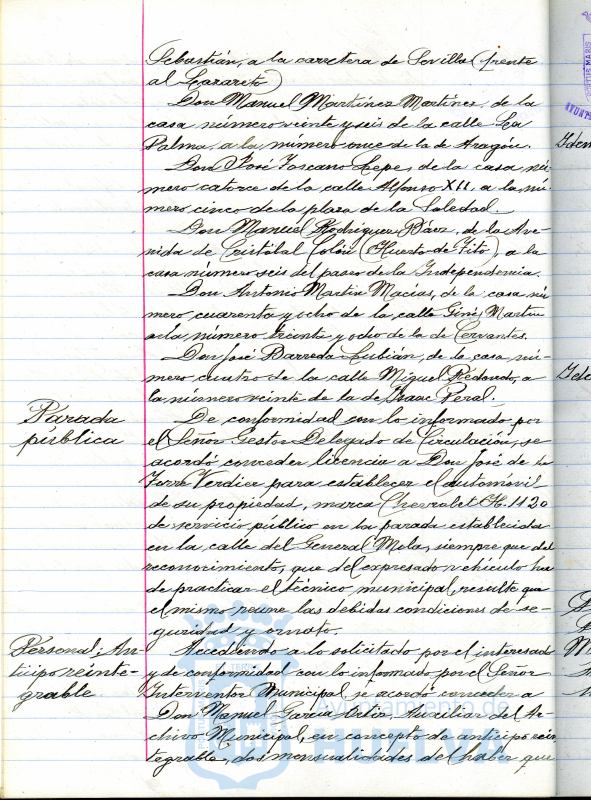 Sebastián, a la carretera de Sevilla (frente
al Lazareto)
Don Manuel Martínez Martínez, de la
casa número veinte y seis de la calle La
Palma, a la número once de la de Aragón.
Don José Toscano Lepe, de la casa nú-
mero catorce de la calle Alfonso XII, a la nú-
mero cinco de la plaza de la Soledad.
Don Manuel Rodríguez Báez, de la Ave-
nida de Cristóbal Colón (Huerto de Tito), a la
casa número seis del paseo de la Independencia.
Don Antonio Martín Macías, de la casa nú
mero cuarenta y ocho de la calle Ginés Martín
a la número treinta y ocho de la de Cervantes.
Don José Barreda Lubián, de la casa nú-
mero cuatro de la calle Miguel Redondo, a
la número veinte de la de Isaac Peral.
Parada
pública
De conformidad con lo informado por
el Señor Gestor Delegado de Circulación, se
acordó conceder licencia a Don José de la
Torre Verdier para establecer el automóvil
de su propiedad, marca Chevrolet H. 1120
de servicio público en la parada establecida
en la calle del General Mola, siempre que del
reconocimiento, que del expresado vehículo ha
de practicar el técnico municipal, resulte que
el mismo reune las debidas condiciones de se-
guridad y ornato.
Personal; An-
ticipo reinte-
grable
Accediendo a lo solicitado por el interesado
y de conformidad con lo informado por el Señor
Interventor Municipal, se acordó conceder a
Don Manuel García Auxiliar del Ar-
chivo Municipal, en concepto de anticipo rein
tegrable, dos mensualidades del haber que
Ayuntamiento de
HUELVA